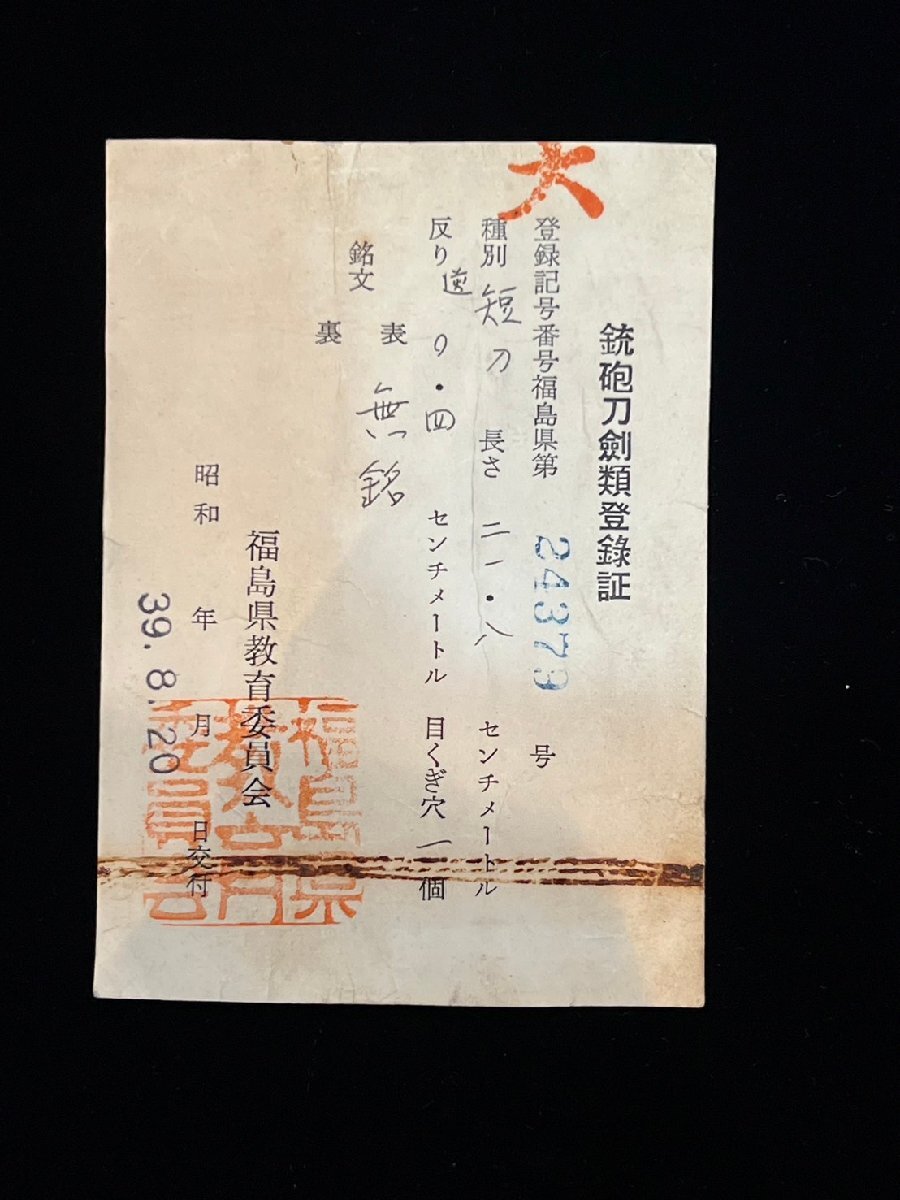 銃砲刀剣類登録証
登録記号番号福島県第 24379 号
種別 短刀 長さ 二一・八 センチメートル
反り 〇・四 センチメートル 目くぎ穴 一個
銘文
表 無銘
裏
福島県教育委員会
昭和 年 月 日交付
39. 8. 20
福島県教育委員会